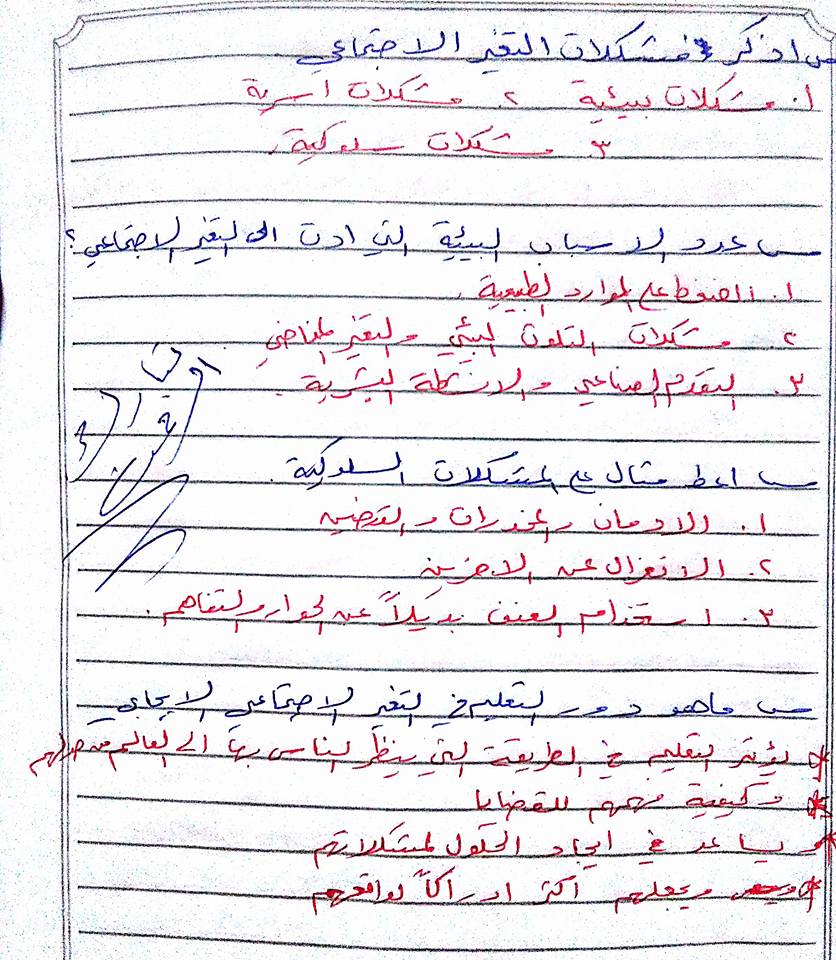 س اذكر مشكلات التغير الاجتماعي
١. مشكلات بيئية ٢. مشكلات اسرية
٣. مشكلات سلوكية.
س عدد الاسباب البيئية التي ادت الى التغير الاجتماعي؟
١. الضغط على الموارد الطبيعية.
٢. مشكلات التلوث البيئي والتغير المناخي
٣. التقدم الصناعي والانشطة البشرية.
س اعط مثال على المشكلات السلوكية.
١. الادمان والمخدرات والتدخين
٢. الانعزال عن الاخرين
٣. استخدام العنف بديلاً عن الحوار والتفاهم.
س ماهو دور التعليم في التغير الاجتماعي الايجابي
* يؤثر التعليم في الطريقة التي ينظر الناس بها الى العالم من حولهم
* وكيفية فهمهم للقضايا
* ويساعد في ايجاد الحلول لمشكلاتهم
* ويجعلهم اكثر ادراكاً لواقعهم